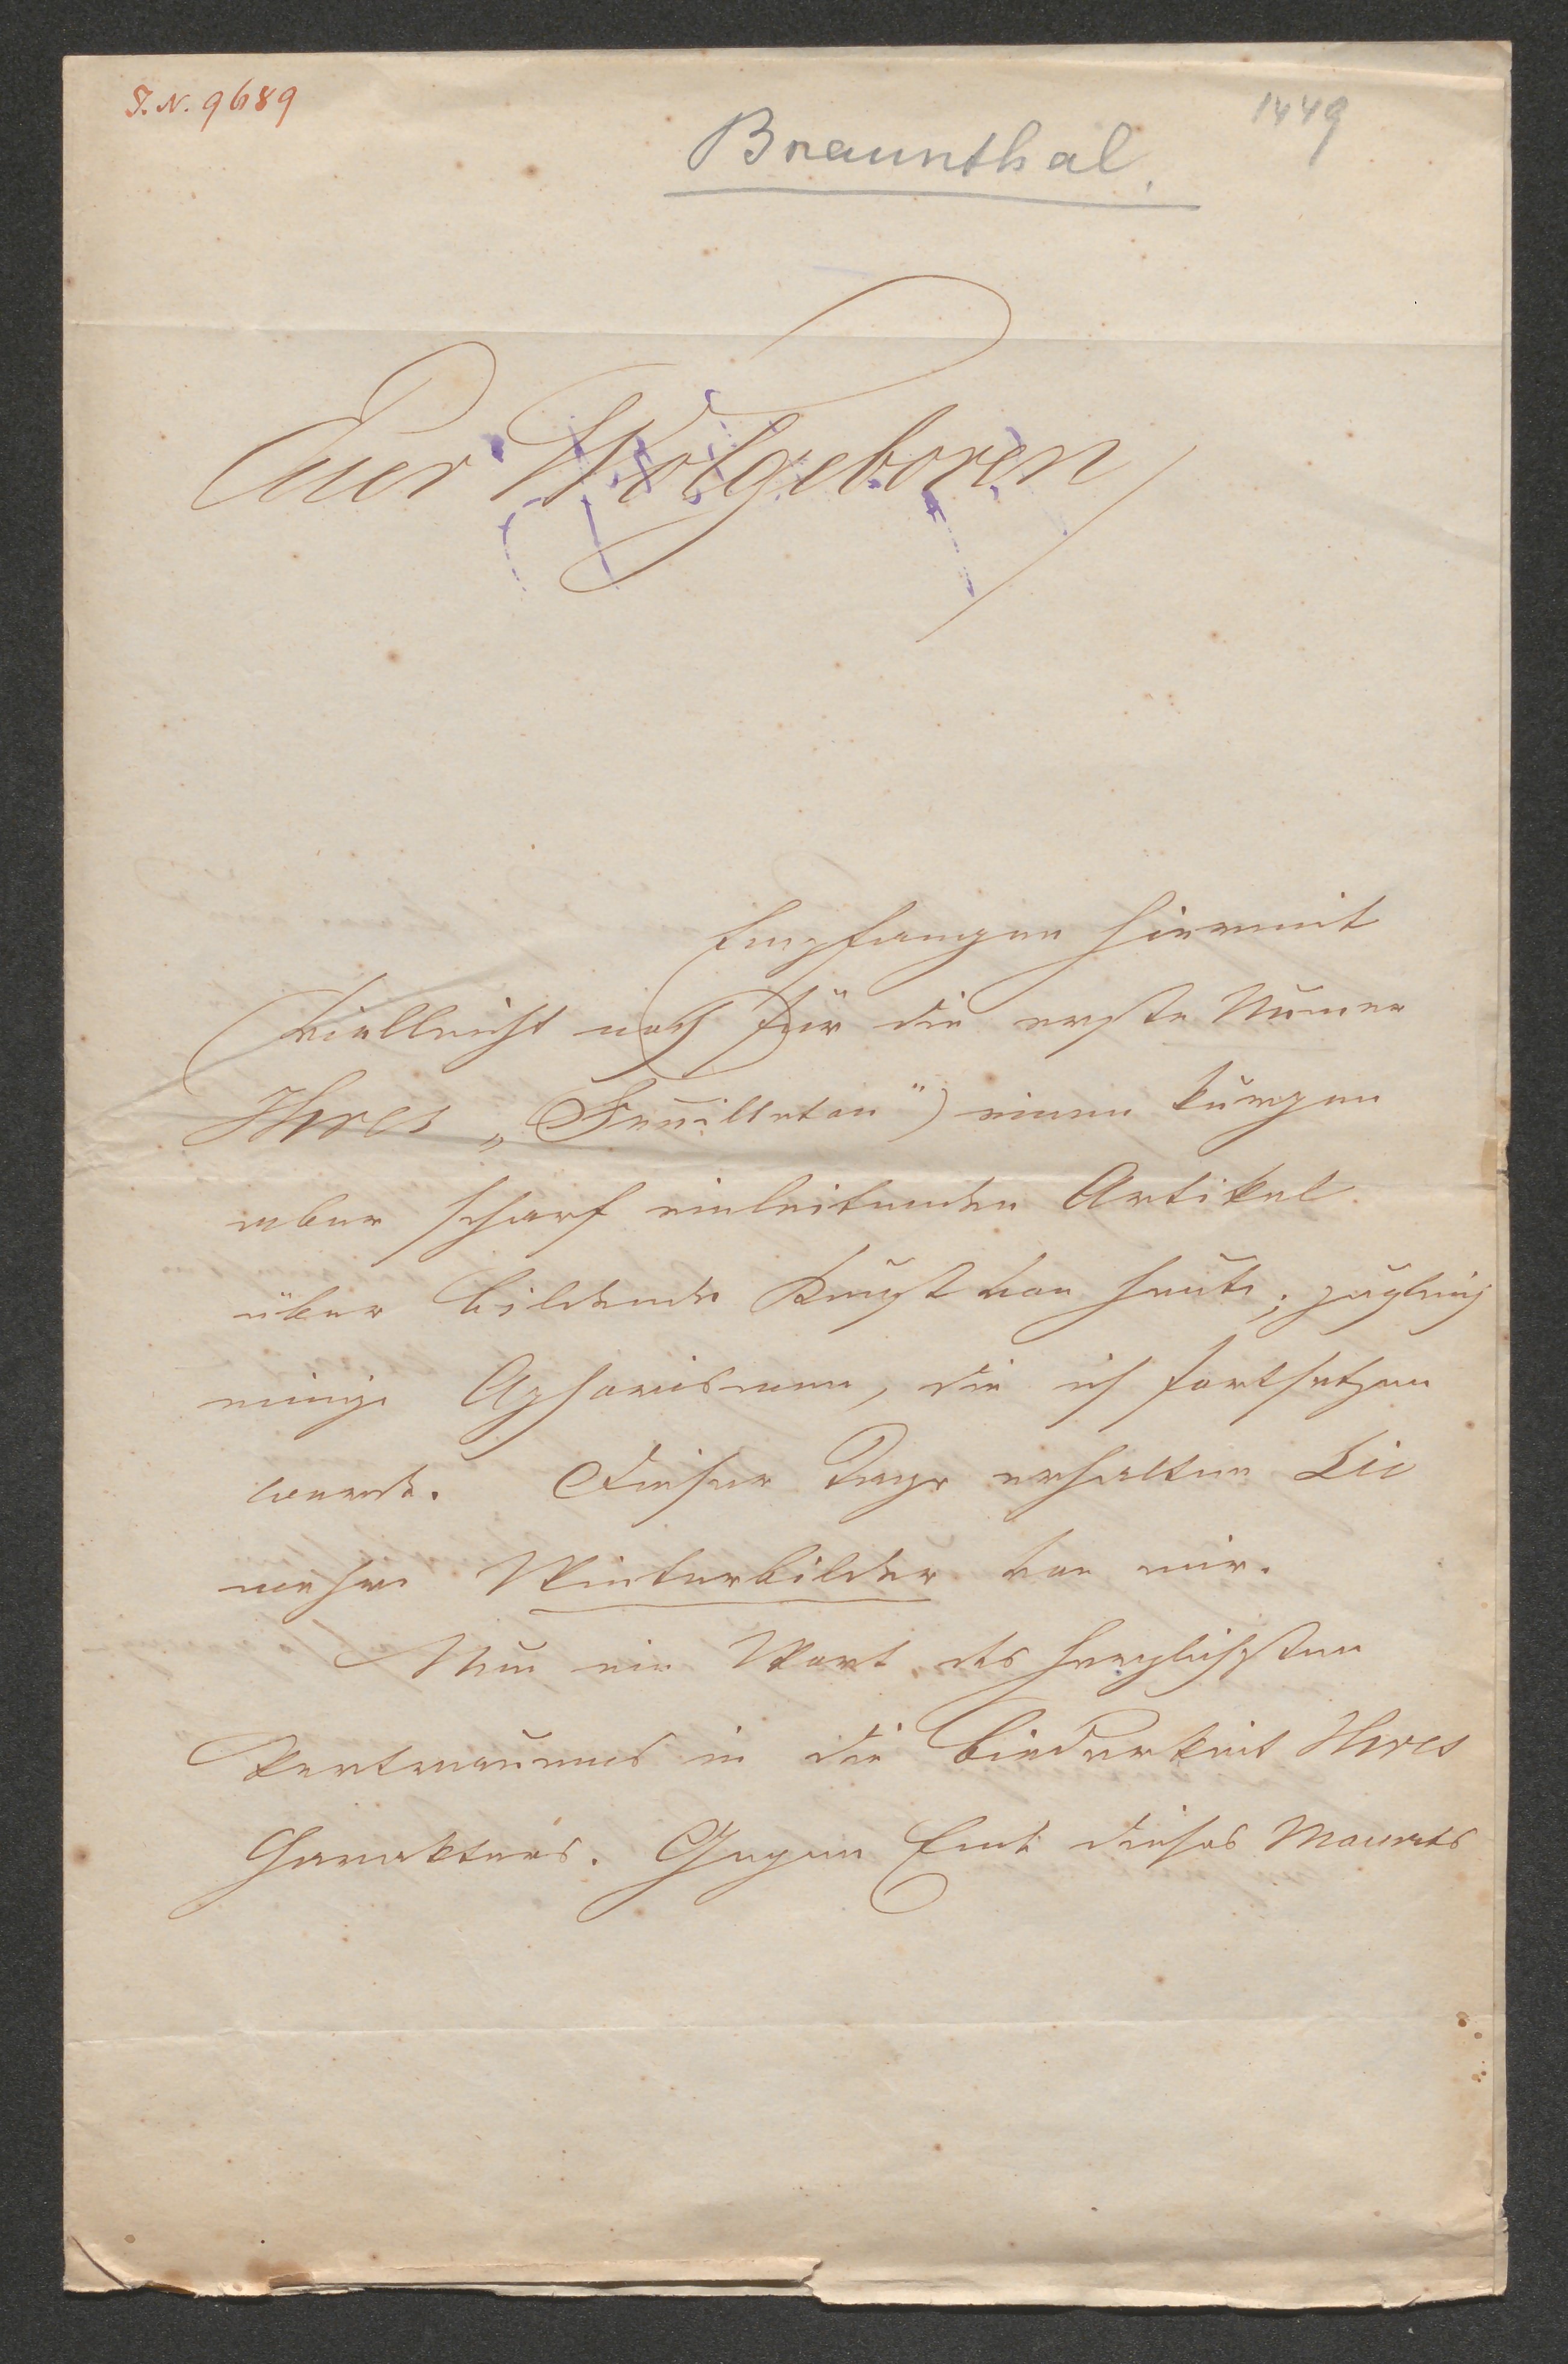 I.N. 9689
1449
Braunthal.
Euer Wolgeboren
Empfangen hiermit
(vielleicht noch für die erste Numer
Ihres „Feuilleton") einen kurzen
aber scharf einleitenden Artikel
über bildende Kunst von heute; zugleich
einige Aphorismen, die ich fortsetzen
werde. Dieser Tage erhalten Sie
mehre Winterbilder von mir.
Nun ein Wort des herzlichsten
Vertrauens in die Biederkeit Ihres
Charakters. Gegen Ende dieses Monats